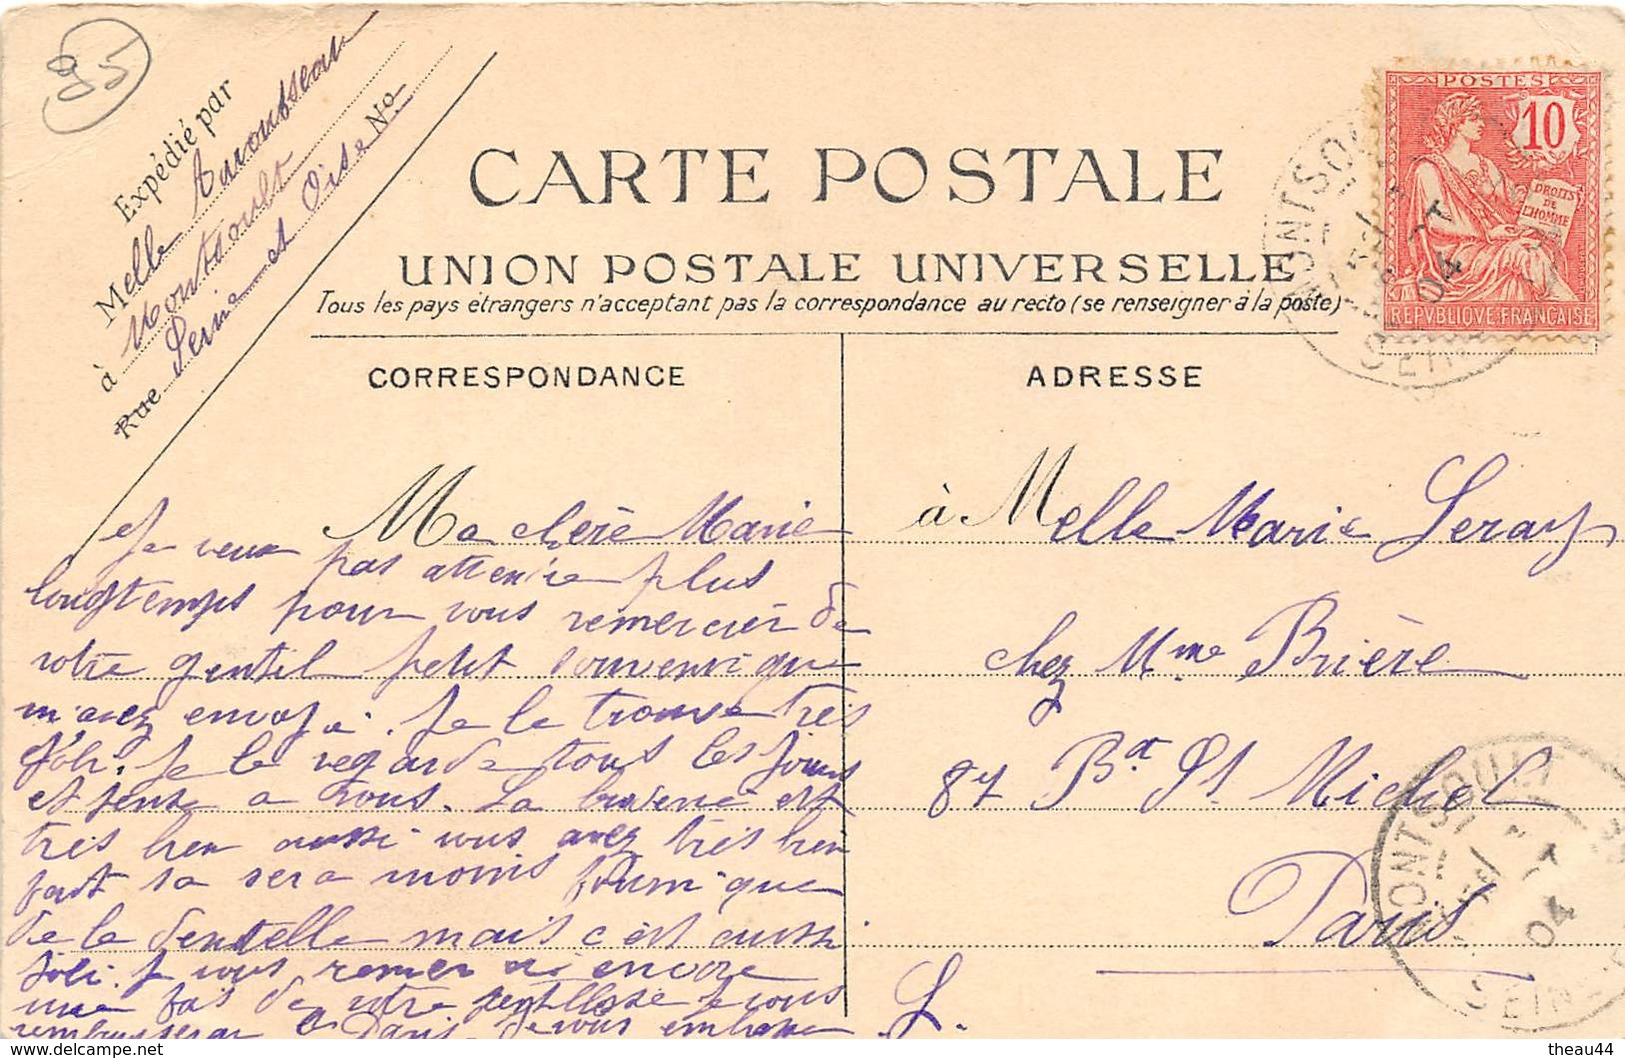 95
Expédié par
Melle
à Montsoult
Rue Seine et Oise No
CARTE POSTALE
UNION POSTALE UNIVERSELLE
Tous les pays étrangers n'acceptent pas la correspondance au recto (se renseigner à la poste)
POSTES
10
DROITS
DE
L'HOMME
REPVBLIQVE FRANCAISE
MONTSOULT
04
SEINE
CORRESPONDANCE
Ma chère Marie
Je veux pas attendre plus
longtemps pour vous remercier de
votre gentil petit souvenir que
m'avez envoyé. Je le trouve très
joli. Je le regarde tous les jours
et pense a vous. La est
très bien aussi vous avez très bien
fait sa sera moins que
de la dentelle mais c'est aussi
joli. Je vous remercie encore
une fois de votre gentillesse je vous
rembourserai a Paris. Je vous embrasse
ADRESSE
à Melle Marie Leray
chez Mme Brière
87 Bd St Michel
Paris
L.
MONTSOULT
04
SEINE
theau44